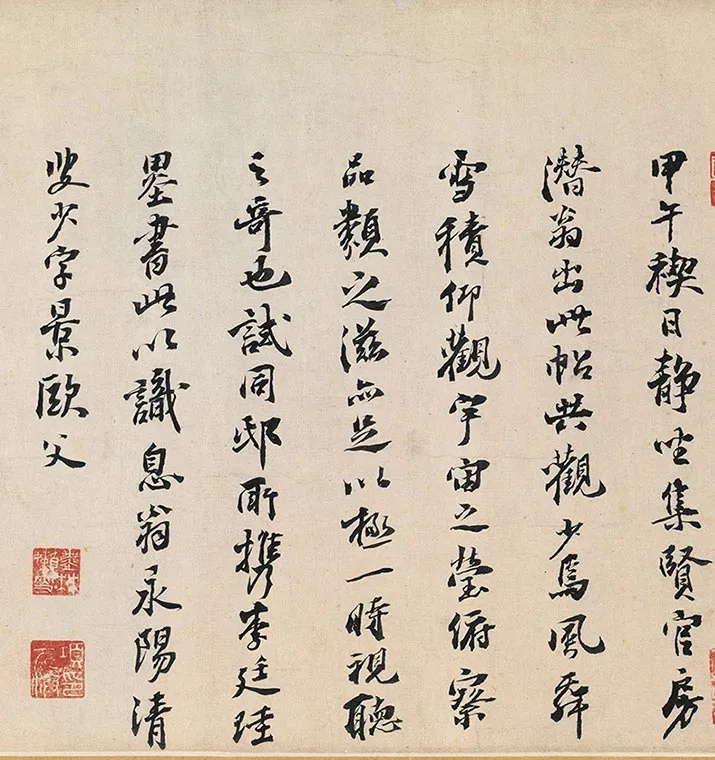 甲午禊日静坐集賢官房
潛翁出此帖共觀少焉風舞
雪積仰觀宇宙之瑩俯察
品類之滋亦足以極一時視聽
之奇也試同邸所攜李廷珪
墨書此以識息翁永陽清
叟少字景歐父